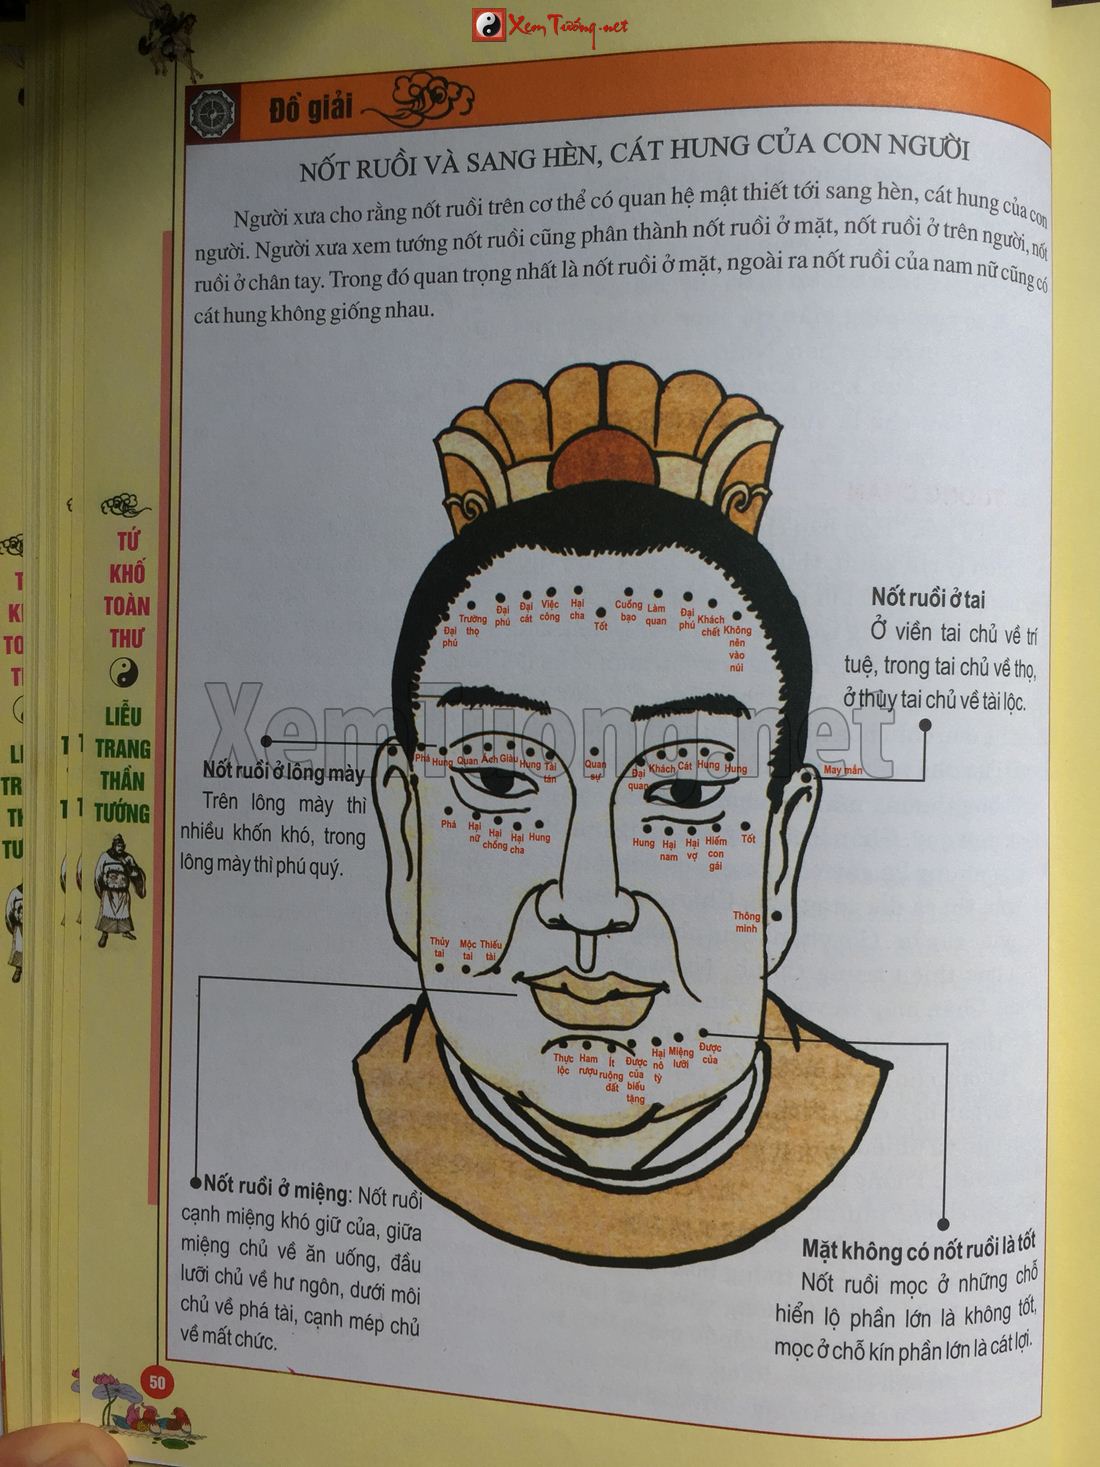 XemTướng.net
Đồ giải
NỐT RUỒI VÀ SANG HÈN, CÁT HUNG CỦA CON NGƯỜI
Người xưa cho rằng nốt ruồi trên cơ thể có quan hệ mật thiết tới sang hèn, cát hung của con
người. Người xưa xem tướng nốt ruồi cũng phân thành nốt ruồi ở mặt, nốt ruồi ở trên người, nốt
ruồi ở chân tay. Trong đó quan trọng nhất là nốt ruồi ở mặt, ngoài ra nốt ruồi của nam nữ cũng có
cát hung không giống nhau.
Đại
phú
Trường
thọ
Đại
phú
Đại
cát
Việc
công
Hại
cha
Tốt
Cuồng
bạo
Làm
quan
Đại
phú
Khách
chết
Không
nên
vào
núi
Nốt ruồi ở tai
Ở viền tai chủ về trí
tuệ, trong tai chủ về thọ,
ở thùy tai chủ về tài lộc.
XemTuong.net
Nốt ruồi ở lông mày
Trên lông mày thì
nhiều khốn khó, trong
lông mày thì phú quý.
Phá
Hung
Quan
Ách
Giàu
Hung
Tài
tán
Quan
sự
Đại
quan
Khách
Cát
Hung
Hung
May mắn
Phá
Hại
nữ
Hại
chồng
Hại
cha
Hung
Hung
Hại
nam
Hại
vợ
Hiếm
con
gái
Tốt
Thông
minh
Thủy
tai
Mộc
tai
Thiếu
tài
Thực
lộc
Ham
rượu
Ít
ruộng
đất
Được
của
biếu
tặng
Hại
nô
tỳ
Miệng
lưỡi
Được
của
Nốt ruồi ở miệng: Nốt ruồi
cạnh miệng khó giữ của, giữa
miệng chủ về ăn uống, đầu
lưỡi chủ về hư ngôn, dưới môi
chủ về phá tài, cạnh mép chủ
về mất chức.
Mặt không có nốt ruồi là tốt
Nốt ruồi mọc ở những chỗ
hiển lộ phần lớn là không tốt,
mọc ở chỗ kín phần lớn là cát lợi.
TỨ
KHỐ
TOÀN
THƯ
LIỄU
TRANG
THẦN
TƯỚNG
50